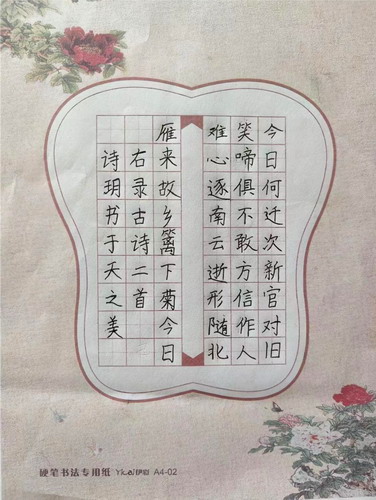 今日何迁次新官对旧
笑啼俱不敢方信作人
难心逐南云逝形随北
雁来故乡篱下菊今日
右录古诗二首
诗玥书于天之美
硬笔书法专用纸 A4-02